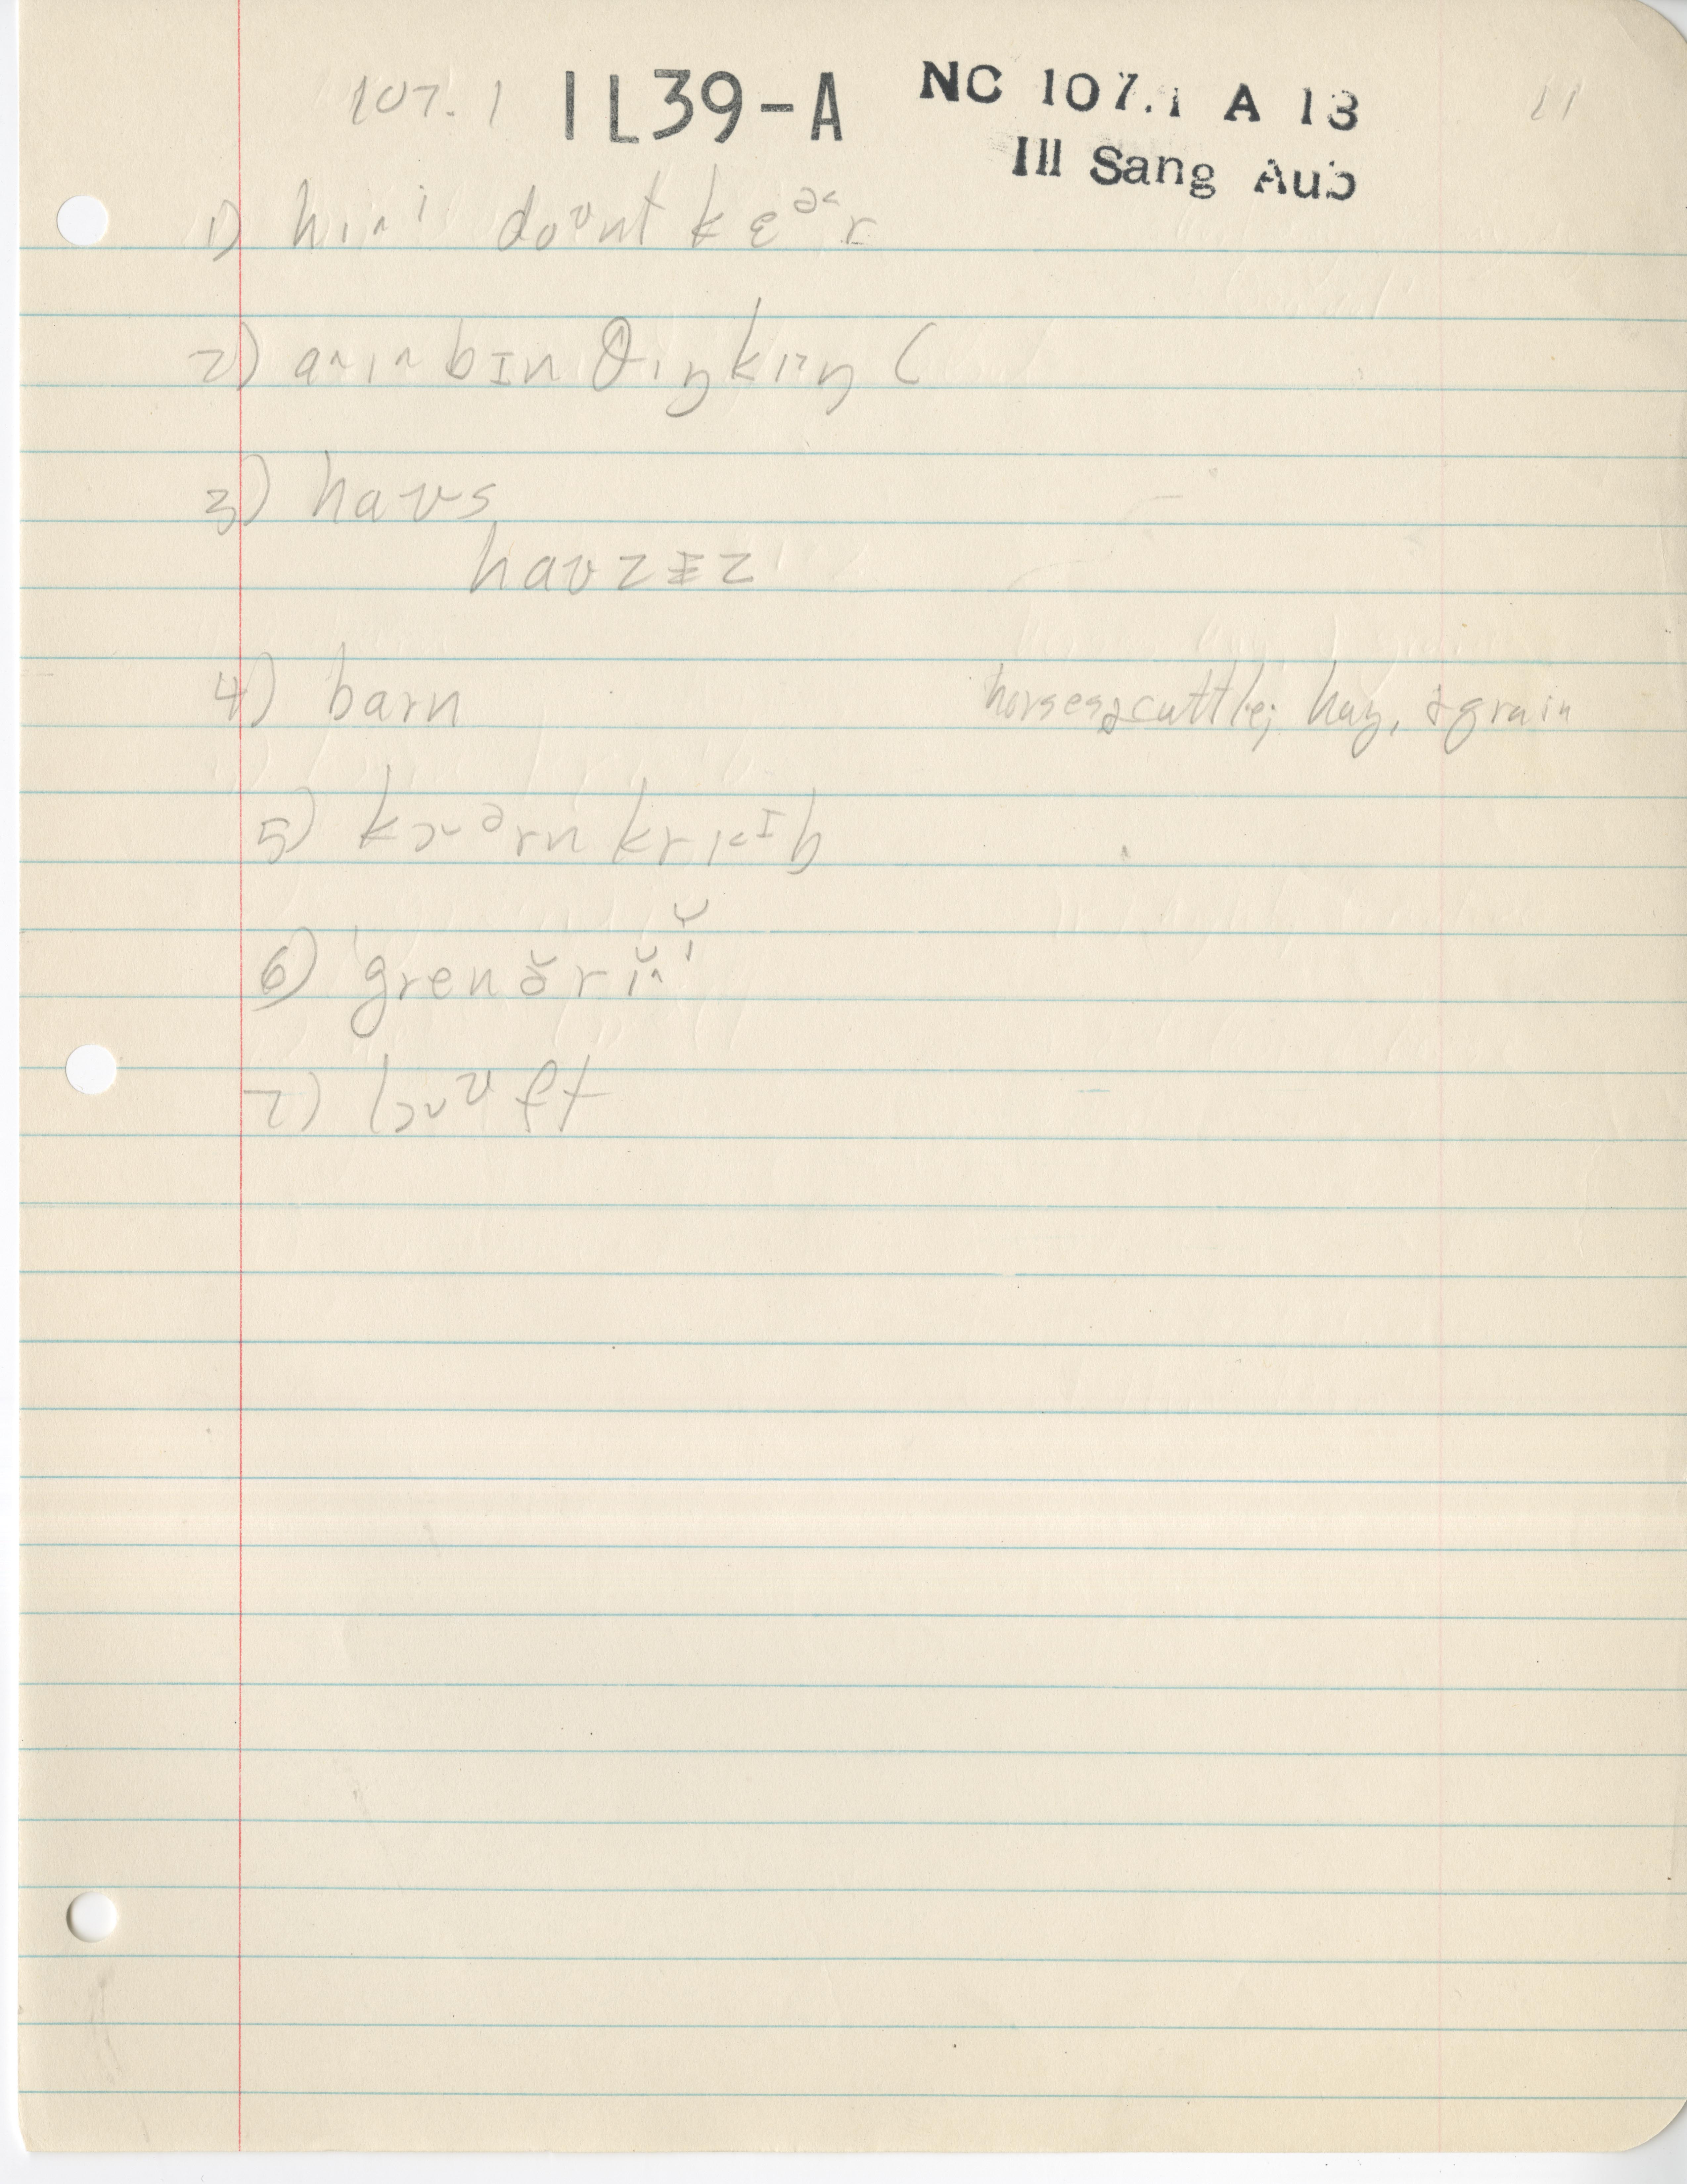 107.1 IL39-A NC 107.1 A 13 11
Ill Sang Aub
1) hɪ˄ⁱ doᶷnt k ɛᵊ˂r
2) a˄ɪ˄ bɪn θɪŋkɪŋ (
3) haʊs
haʊzɪz
4) barn horses & cattle; hay, & grain
5) kɔ˞ᵊrn krɪ˂ᴵb
6) ˈgrenə̆rĭ˄ⁱ̆
7) lɔ˅ᶷft